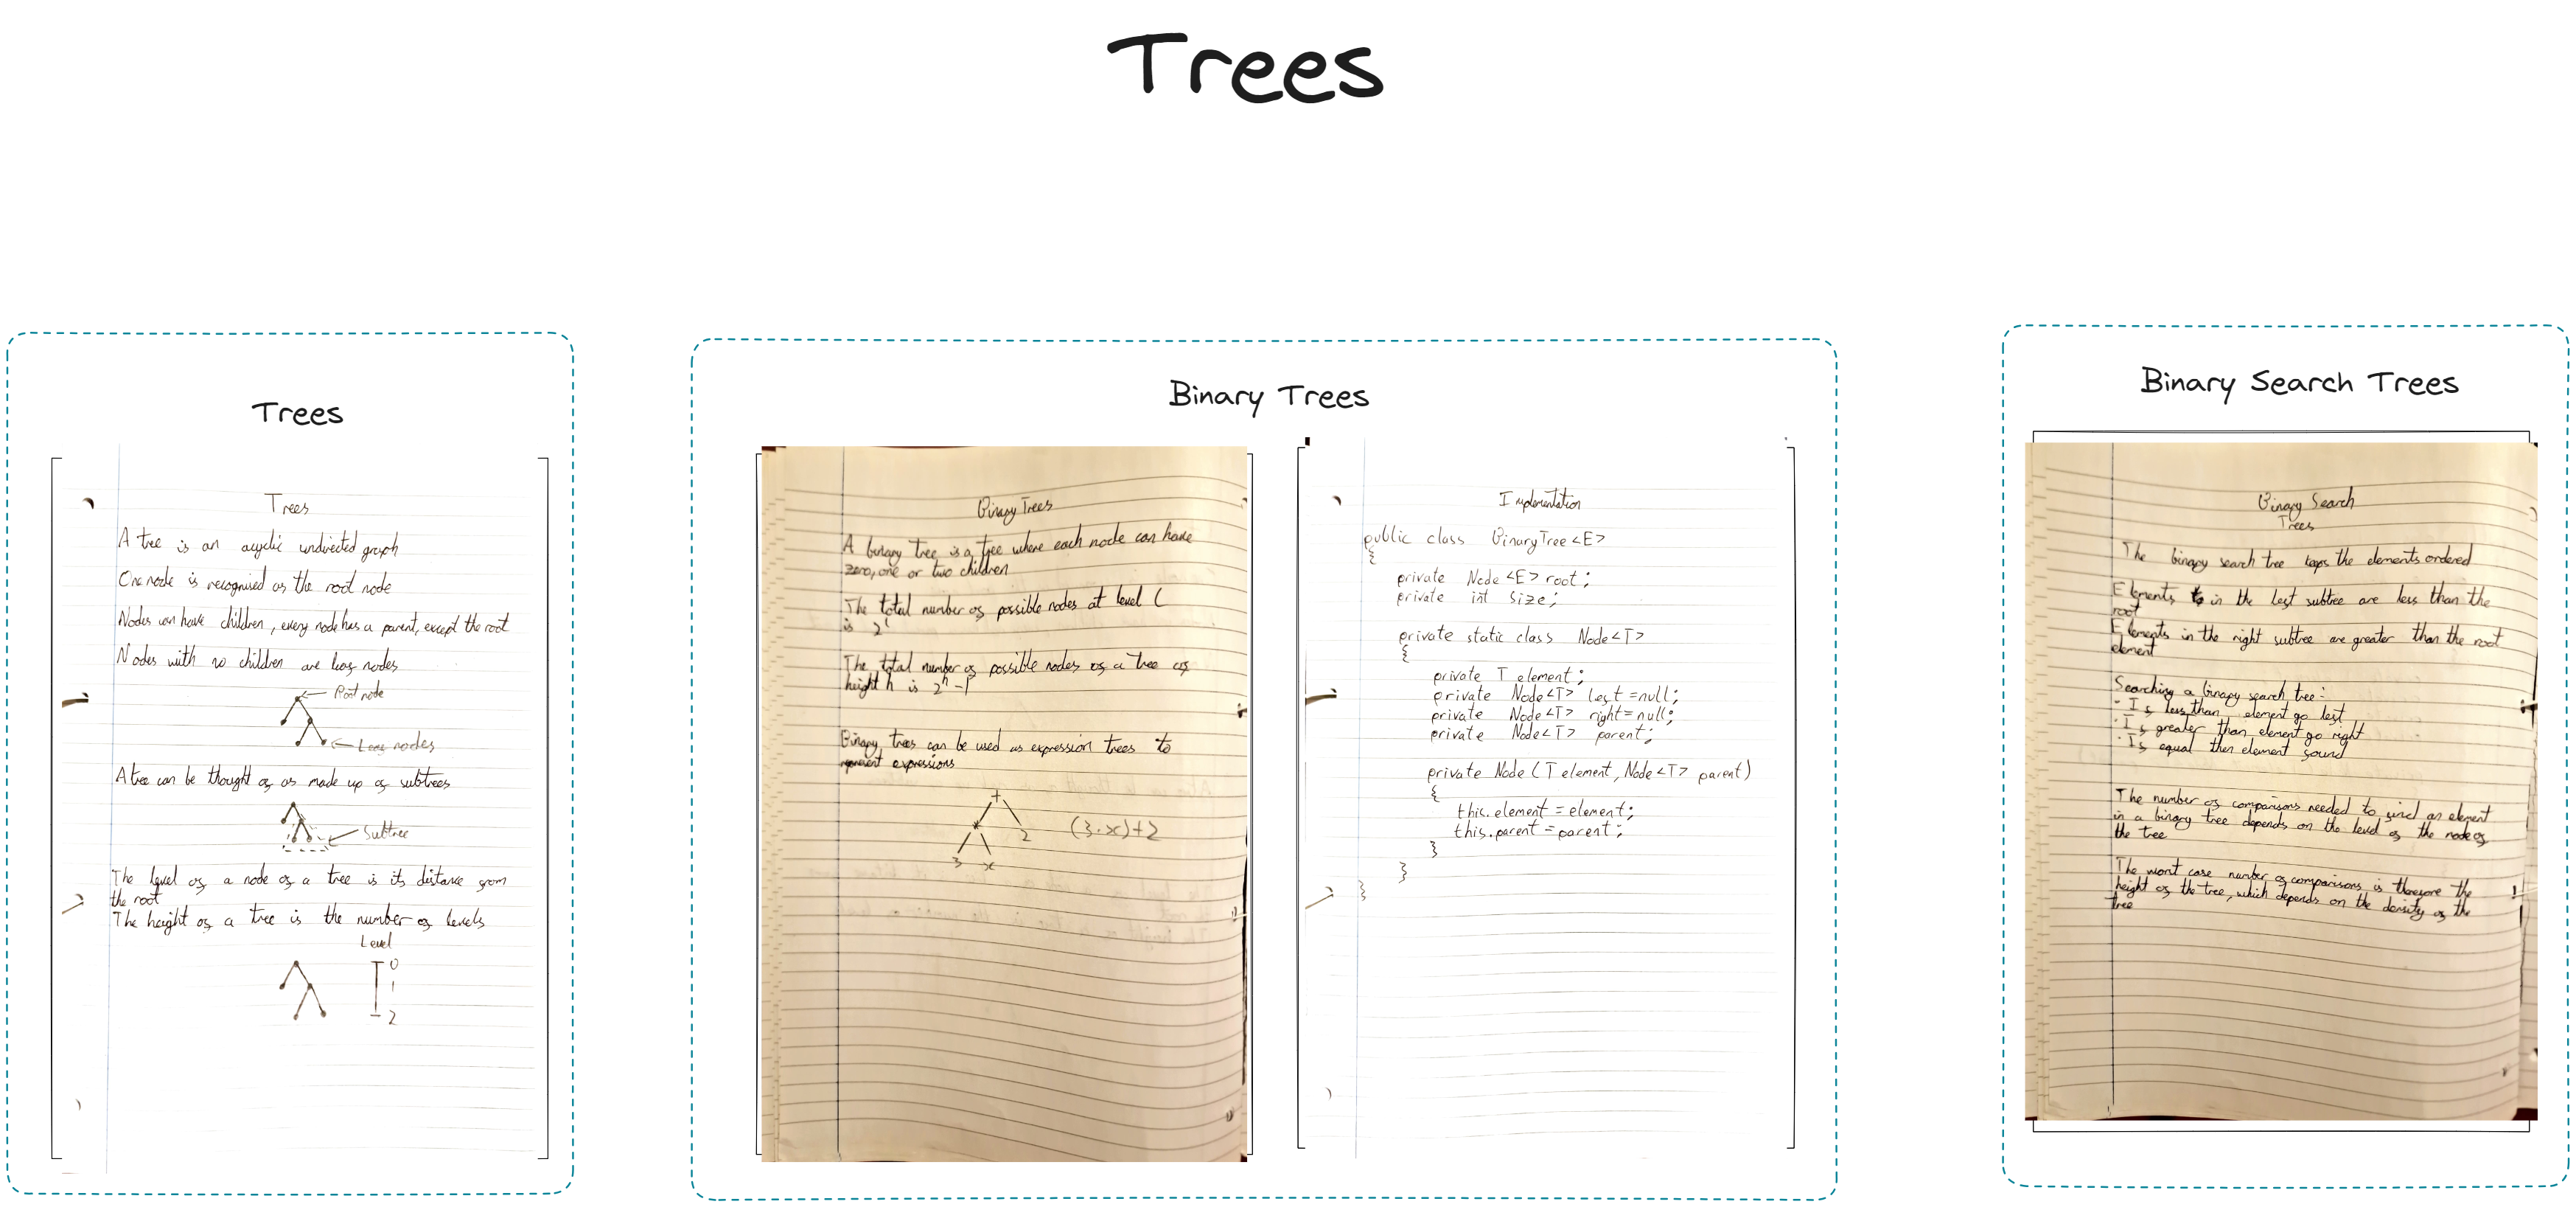 Trees
Trees
Trees
A tree is an acyclic undirected graph
One node is recognised as the root node
Nodes can have children, every node has a parent, except the root
Nodes with no children are leaf nodes
Root node
Leaf nodes
A tree can be thought of as made up of subtrees
Subtree
The level of a node of a tree is its distance from
the root
The height of a tree is the number of levels
Level
0
1
2
Binary Trees
Binary Trees
A binary tree is a tree where each node can have
zero, one or two children
The total number of possible nodes at level l
is 2^l
The total number of possible nodes of a tree of
height h is 2^h-1
Binary trees can be used as expression trees to
represent expressions
+
* 2 (3·x)+2
3 x
Implementation
public class BinaryTree<E>
{
private Node<E> root;
private int size;
private static class Node<T>
{
private T element;
private Node<T> left=null;
private Node<T> right=null;
private Node<T> parent;
private Node(T element, Node<T> parent)
{
this.element = element;
this.parent = parent;
}
}
}
Binary Search Trees
Binary Search
Trees
The binary search tree keeps the elements ordered
Elements in the left subtree are less than the
root
Elements in the right subtree are greater than the root
element
Searching a binary search tree:
· If less than element go left
· If greater than element go right
· If equal then element found
The number of comparisons needed to find an element
in a binary tree depends on the level of the node of
the tree
The worst case number of comparisons is therefore the
height of the tree, which depends on the density of the
tree